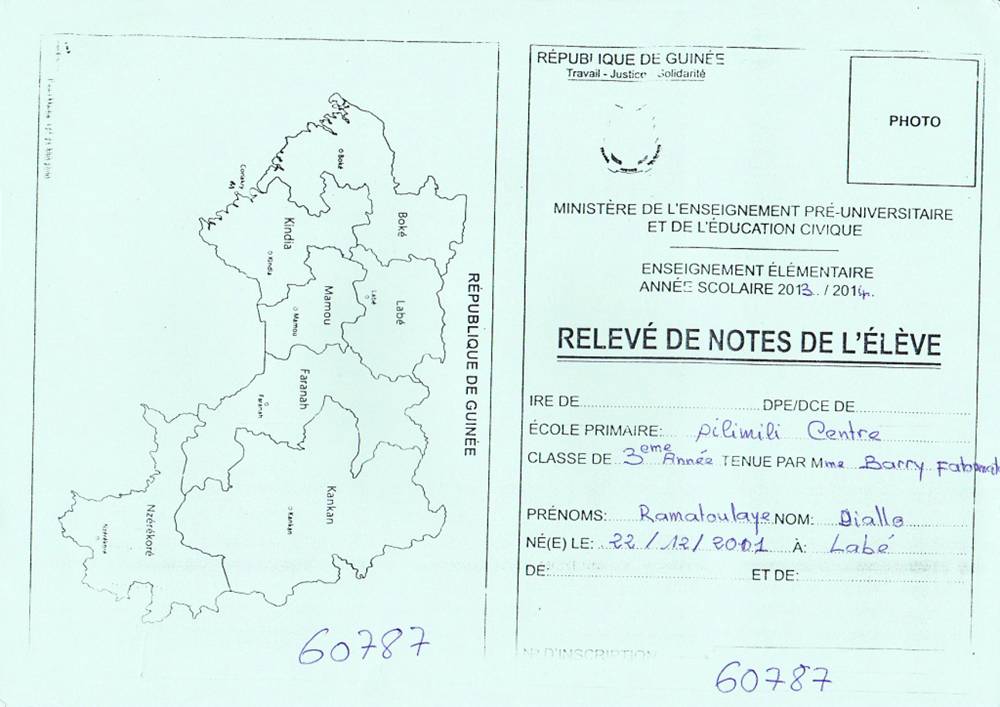 RÉPUBLIQUE DE GUINÉE
Boké
Boké
Conakry
Kindia
Kindia
Labé
Labé
Mamou
Mamou
Faranah
Faranah
Kankan
Kankan
Nzérékoré
60787
RÉPUBLIQUE DE GUINÉE
Travail - Justice Solidarité
PHOTO
MINISTÈRE DE L'ENSEIGNEMENT PRÉ-UNIVERSITAIRE
ET DE L'ÉDUCATION CIVIQUE
ENSEIGNEMENT ÉLÉMENTAIRE
ANNÉE SCOLAIRE 2013 / 2014
RELEVÉ DE NOTES DE L'ÉLÈVE
IRE DE DPE/DCE DE
ÉCOLE PRIMAIRE: Dilimili Centre
CLASSE DE 3eme Année TENUE PAR Mme Barry
PRÉNOMS: Ramatoulaye NOM: Diallo
NÉ(E) LE: 22/12/2001 À: Labé
DE: ET DE:
N° D'INSCRIPTION
60787